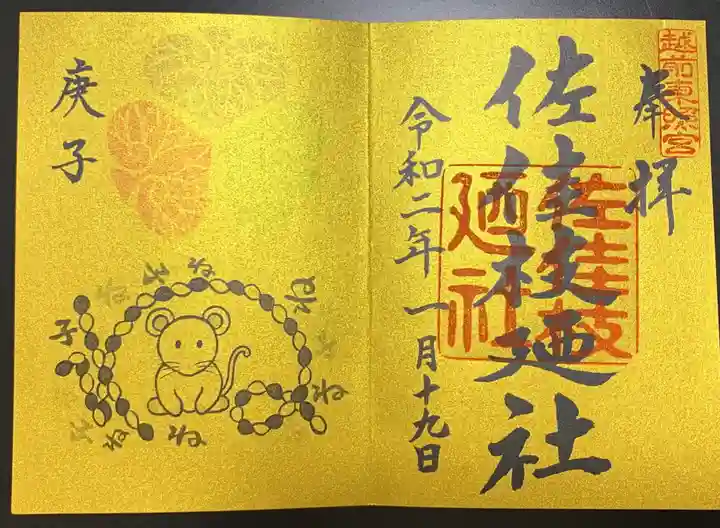 越前東照宮
奉拝
佐佳枝廼社
佐佳枝
廼社
令和二年 一月十九日
庚子
子
ね
ね
ね
ね